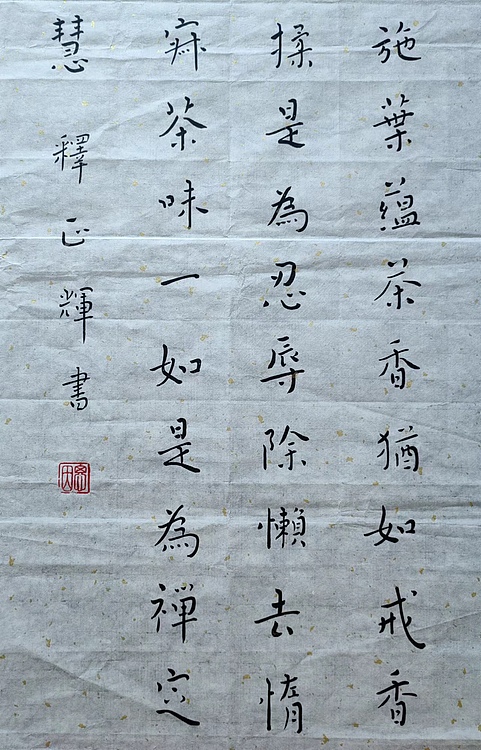 施葉蘊茶香猶如戒香
揉是為忍辱除懶去惰
寐茶味一如是為禪定
慧
釋正輝書